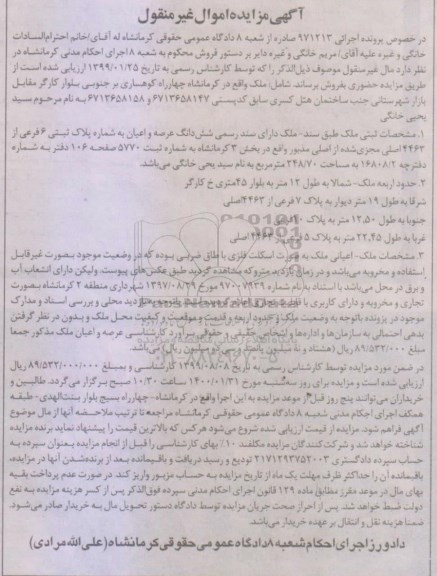 آگهی مزایده اموال غیر منقول
در خصوص پرونده اجرائی ۹۷۱۲۱۳ صادره از شعبه ۸ دادگاه عمومی حقوقی کرمانشاه له آقای/خانم احترام السادات
خانگی و غیره علیه آقای/ مریم خانگی و غیره دایر بر دستور فروش محکوم به شعبه ۸ اجرای احکام مدنی کرمانشاه در
نظر دارد مال غیر منقول موصوف ذیل الذکر را که توسط کارشناس رسمی به تاریخ ۱۳۹۹/۰۱/۲۵ ارزیابی شده است از
طریق مزایده حضوری بفروش برساند. شامل: ملک واقع در کرمانشاه چهارراه کوهساری بر جنوبی بلوار کارگر مقابل
بازار شهرستانی جنب ساختمان هتل کسری سابق کدپستی ۶۷۱۳۶۵۸۱۴۷ و ۶۷۱۳۶۵۸۱۵۸ به نام مرحوم سید
یحیی خانگی
۱. مشخصات ثبتی ملک طبق سند - ملک دارای سند رسمی شش دانگ عرصه و اعیان به شماره پلاک ثبتی ۶ فرعی از
۴۴۶۳ اصلی مجزی شده از اصلی مذبور واقع در بخش ۳ کرمانشاه به شماره ثبت ۵۷۷۰ صفحه ۱۰۶ دفتر به شماره
دفترچه ۱۶۸۰۸/۲ به مساحت ۲۴۸/۷۰ متر مربع به نام سید یحی خانگی می باشد.
۲. حدود اربعه ملک - شمالا به طول ۱۲ متر به بلوار ۴۵ متری خ کارگر
شرقا به طول ۱۹ متر دیوار به پلاک ۷ فرعی از ۴۴۶۳ اصلی
جنوبا به طول ۱۲،۵۰ متر به پلاک
غربا به طول ۲۲،۴۵ متر به پلاک ۵ فرعی از ۴۴۶۳ اصلی
۳. مشخصات ملک - اعیانی ملک به صورت اسکلت فلزی با طاق ضربی بوده که در وضعیت موجود بصورت غیر قابل
استفاده و مخروبه می باشد و در زمان بازدید متروکه مشاهده گردید طبق عکس های پیوست. ولیکن دارای انشعاب آب
و برق در محل می باشد با استناد به نام شماره ۹۷۰۰۷۹۳۹ مورخ ۱۳۹۷/۰۸/۲۹ شهرداری منطقه ۲ کرمانشاه بصورت
تجاری و مخروبه و دارای کاربری با بازدید محلی و بررسی اسناد و مدارک
موجود در پرونده باتوجه به وضعیت ملک و حدود اربعه و قدمت و موقعیت و کیفیت محل ملک و بدون در نظر گرفتن
بدهی احتمالی به سازمان ها و اداره ها و اشخاص حقیقی و حقوقی برآورد کارشناسی عرصه و اعیان ملک مذکور جمعا
مبلغ ۸۹/۵۳۲/۰۰۰ ریال (هشتاد و نه میلیون پانصد و سی دو میلیون ریال) می باشد.
در ضمن مورد مزایده توسط کارشناس رسمی به تاریخ ۱۳۹۹/۰۸/۰۸ کارشناسی و بمبلغ ۸۹/۵۳۲/۰۰۰/۰۰۰ ریال
ارزیابی شده است و مزایده برای روز سه شنبه مورخ ۱۴۰۰/۰۱/۳۱ ساعت ۱۰/۳۰ صبح برگزار می گردد. طالبین و
خریداران می توانند پنج روز قبل از موعد مزایده به این اجرا واقع در کرمانشاه - چهارراه بسیج بلوار بنت الهدی - طبقه
همکف اجرای احکام مدنی شعبه ۸ دادگاه عمومی حقوقی کرمانشاه مراجعه تا ترتیب ملاحظه آنها از مال موضوع
آگهی فراهم شود. مزایده از قیمت ارزیابی شده شروع می شود هر کس که بالاترین قیمت را پیشنهاد نماید برنده مزایده
شناخته خواهد شد و شرکت کنندگان مزایده مکلفند ۱۰٪ بهای کارشناسی را قبل از انجام مزایده بعنوان سپرده به
حساب سپرده دادگستری ۲۱۷۱۲۹۳۷۵۲۰۰۳ تودیع و رسید دریافت و باقیمانده بعد از برنده شدن آنها در مزایده،
باقیمانده آن را حداکثر ظرف مهلت یک ماه از تاریخ مزایده به حساب مزبور واریز کند. در صورت عدم پرداخت بقیه
بهای مال در موعد مقرر مطابق ماده ۱۲۹ قانون اجرای احکام مدنی سپرده فوق الذکر پس از کسر هزینه مزایده به نفع
دولت ضبط خواهد شد. پس از احراز صحت جریان مزایده توسط دادگاه دستور تحویل مال به خریدار صادر می شود.
ضمنا هزینه نقل و انتقال بر عهده خریدار می باشد.
دادورز اجرای احکام شعبه ۸ دادگاه عمومی حقوقی کرمانشاه (علی الله مرادی)